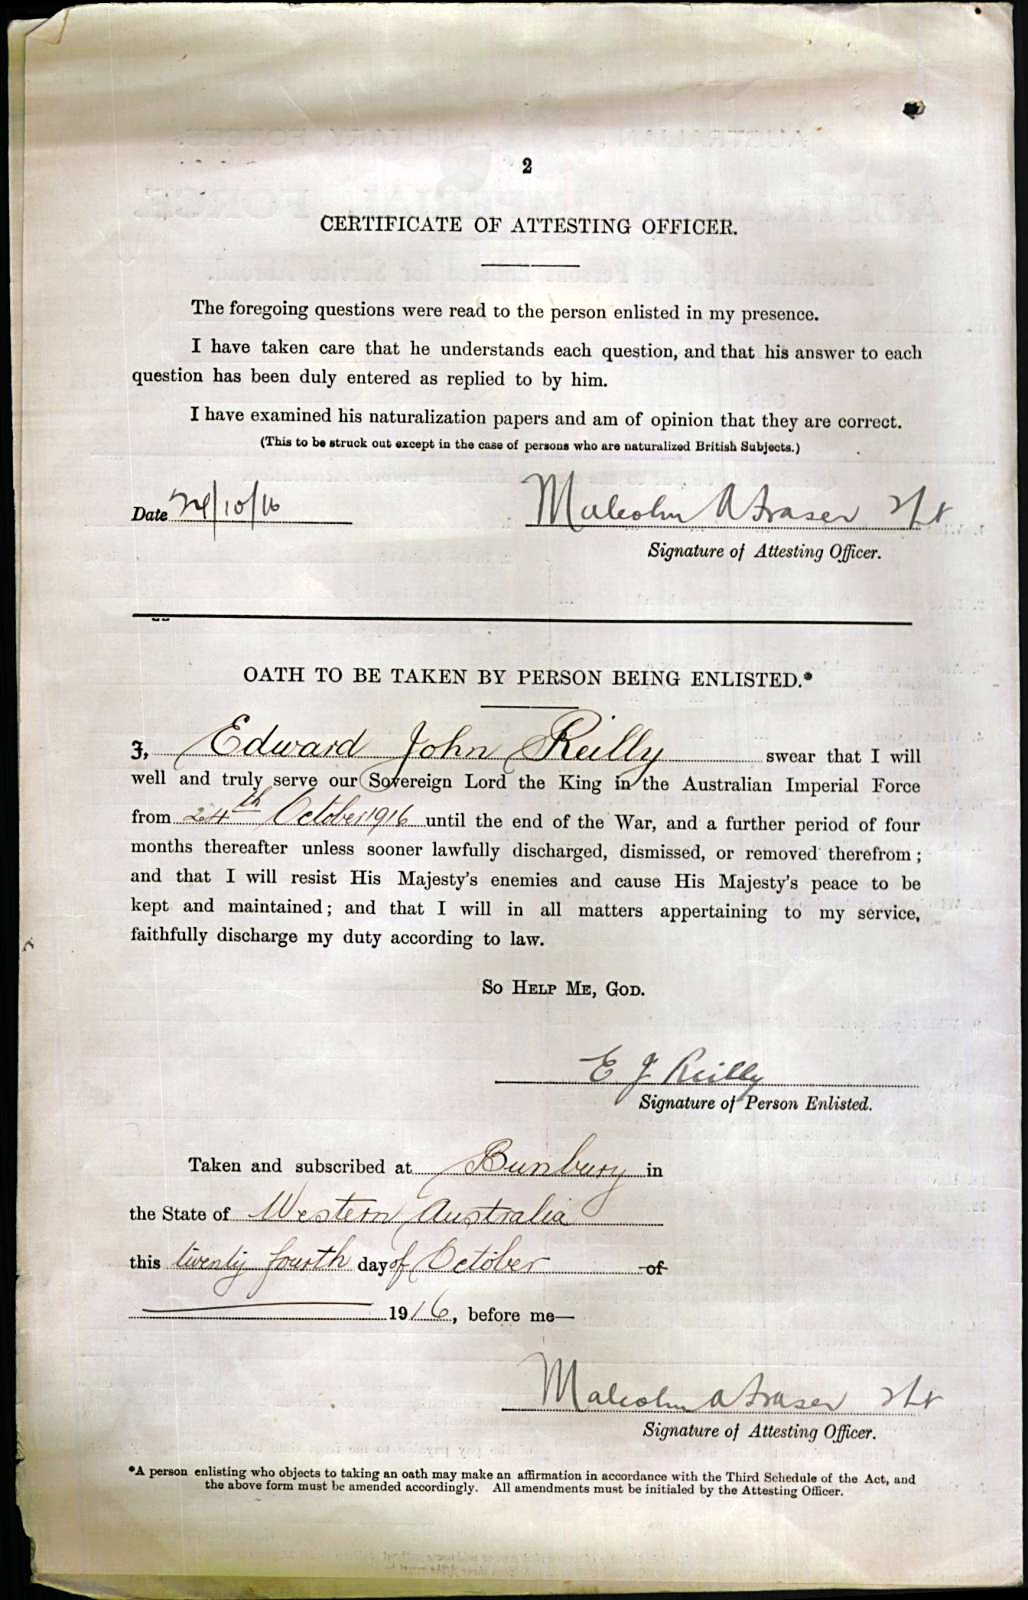 2
CERTIFICATE OF ATTESTING OFFICER.
The foregoing questions were read to the person enlisted in my presence.
I have taken care that he understands each question, and that his answer to each
question has been duly entered as replied to by him.
I have examined his naturalization papers and am of opinion that they are correct.
(This to be struck out except in the case of persons who are naturalized British Subjects.)
Date 24/10/16 Malcolm A Fraser
Signature of Attesting Officer.
OATH TO BE TAKEN BY PERSON BEING ENLISTED.*
I, Edward John Reilly swear that I will
well and truly serve our Sovereign Lord the King in the Australian Imperial Force
from 24th October 1916 until the end of the War, and a further period of four
months thereafter unless sooner lawfully discharged, dismissed, or removed therefrom;
and that I will resist His Majesty's enemies and cause His Majesty's peace to be
kept and maintained; and that I will in all matters appertaining to my service,
faithfully discharge my duty according to law.
So Help Me, God.
E J Reilly
Signature of Person Enlisted.
Taken and subscribed at Bunbury in
the State of Western Australia
this twenty fourth day of October of
1916, before me—
Malcolm A Fraser
Signature of Attesting Officer.
*A person enlisting who objects to taking an oath may make an affirmation in accordance with the Third Schedule of the Act, and
the above form must be amended accordingly. All amendments must be initialed by the Attesting Officer.